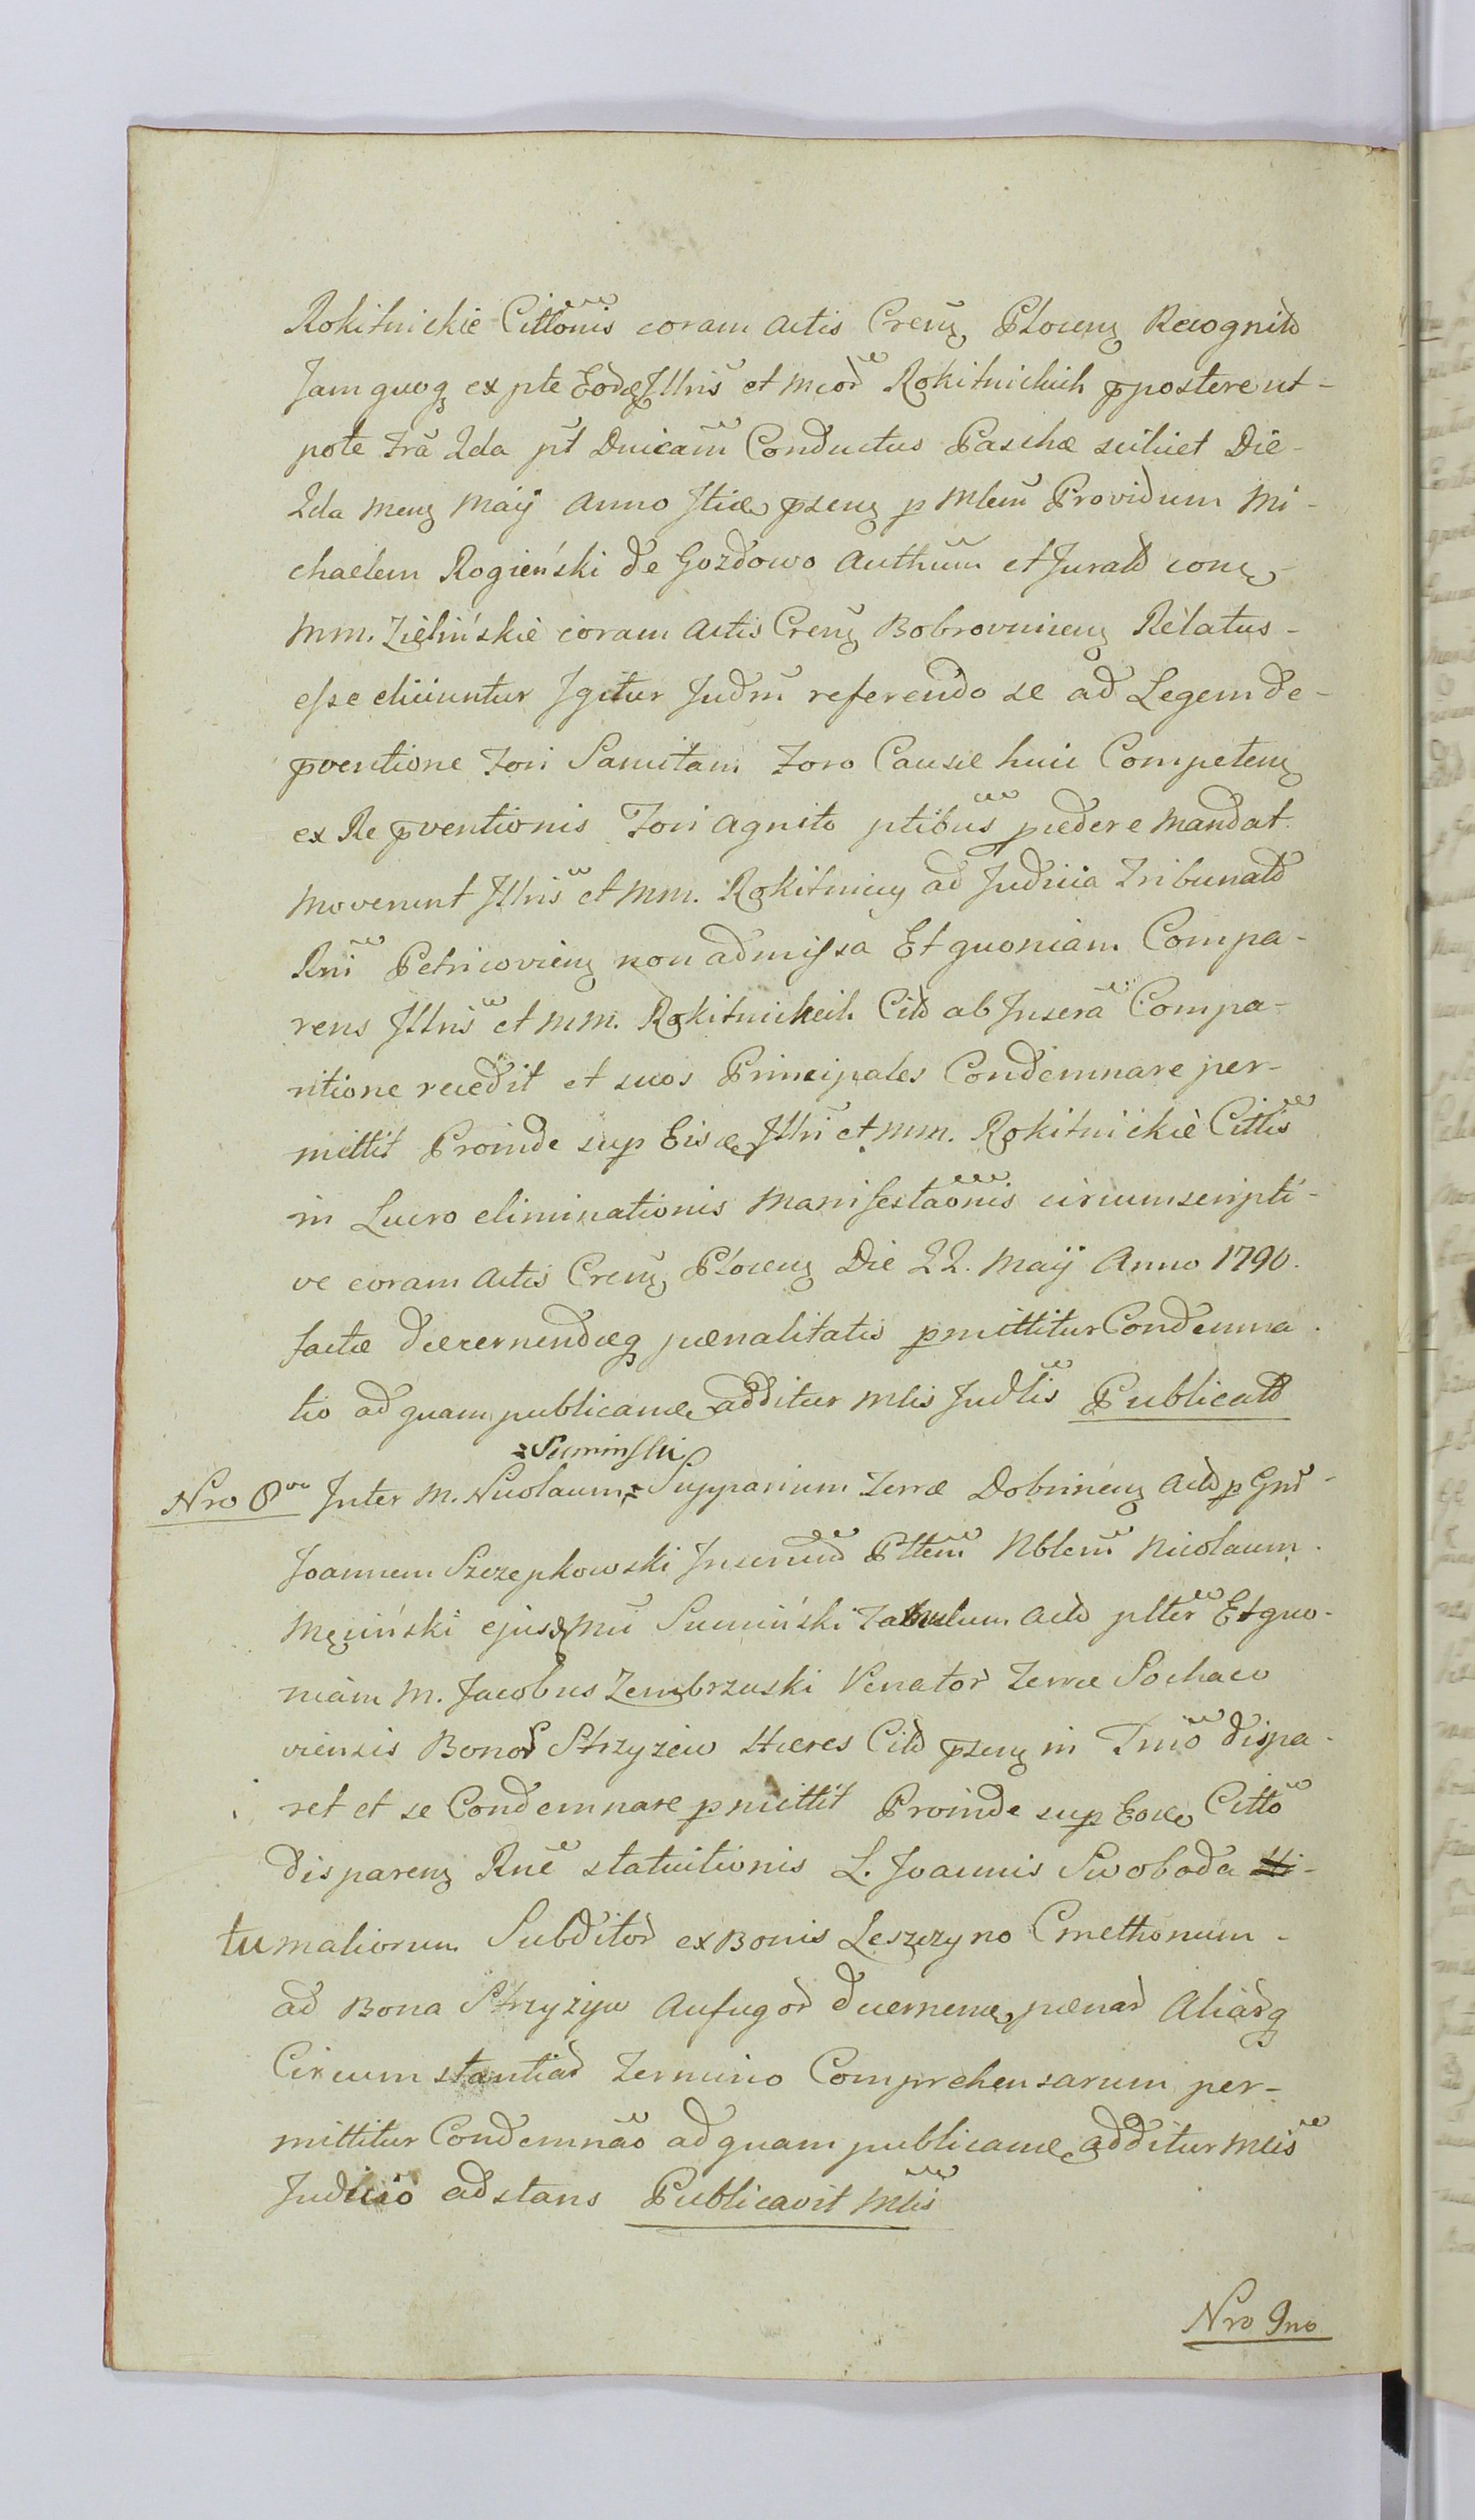 Rokitnickie Cittonis coram Actis Creng Ploceng Recognito
Jam quoq ex pte Eordq Jllris et mcor Rokitnickich ppostere ut-
pote Fra 2da pt Dnicam Conductus Paschæ scilicet Die-
2da Meng Maÿ Anno Jtiæ pseng p Mlem Providum Mi-
chaelem Rogieński de Gozdowo Authum et Jurat con
mm. Zielińskie coram Actis Creng Bobrovniceng Relatus-
esse eliciuntur Jgitur Judm referendo se ad Legem de-
pventione Fori Sancitam Foro Causæ huic Competeng
ex Re pventionis Fori Agnito ptibus pcedere Mandat
Movenint Jllris et mm. Rokitnicy ad Judicia Tribunal
Rni Petricovieng non admissa Et quoniam Compa-
rens Jllris et mm. Rokitnickich Cit ab Jnsera Compa-
ritione recedit et suos Principales Condemnare per-
mittit Proinde sup Eisd Jllri et mm. Rokitnickie Cittis
in Lucro eliminationis Manifestaonis circumscripti-
ve coram Actis Creng Ploceng Die 22. Maÿ Anno 1790.
factæ decernendæq pœnalitatis pmittitur Condemna.
tio ad quam publicand additur Mlis Judlis Publicat
=Suminski
Nro 8vo Jnter M. Nicolaum = Supparium Terræ Dobrineng Act p Gnr
Joannem Szczepkowski Jnserend Pltem Nblem Nicolaum.
Męciński ejusd Mci Sumiński Famulum Act plter Et quo-
niam M. Jacobus Zembrzuski Venator Terræ Sochaco
viensis Bonor Strzyzew Hæres Cit pseng in Tmo dispa-
ret et se Condemnare pmittit Proinde sup Eod Citto
dispareng Rne statuitionis L. Joannis Swoboda Hi-
tumaliorum Subditor ex Bonis Leszczyno Cmethonum-
ad Bona Strzyzyw Aufugor decernend pœnar Aliarq
Circumstantiar Termino Comprehensarum per-
mittitur Condemnao ad quam publicand additur Mlis
Judicio adstans Publicavit Mlis
Nro 9no